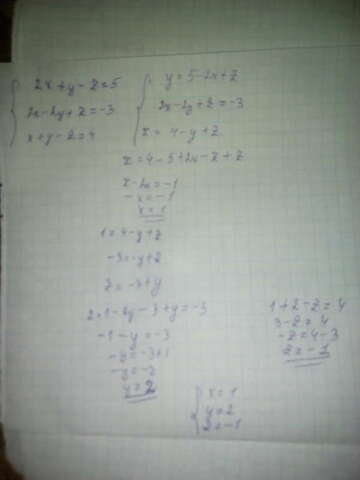 2x+y-z=5
2x-2y+z=-3
x+y-z=4
y=5-2x+z
2x-2y+z=-3
x=4-y+z
x=4-5+2x-z+z
x-2x=-1
-x=-1
x=1
1=4-y+z
-3=-y+z
z=-3+y
2·1-2y-3+y=-3
-1-y=-3
-y=-3+1
-y=-2
y=2
1+2-z=4
3-z=4
-z=4-3
z=-1
x=1
y=2
z=-1